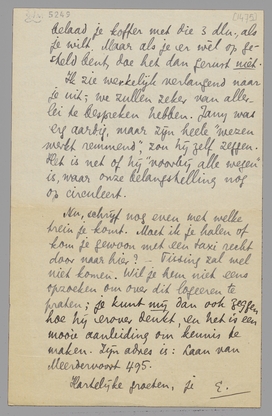 5263
belaad je koffer met die 3 dln. als
je wilt. Maar als je er wèl op ge-
steld bent, doe het dan gerust niet.
Ik zie werkelijk verlangend naar
je uit; we zullen zeker van aller-
lei te bespreken hebben. Jany was
erg aardig, maar zijn heele "wezen
werkt remmend", zou hij zelf zeggen.
Het is net of hij "voorbij alle wegen"
is, waar onze belangstelling nog
op circuleert.
Nu, schrijf nog even met welke
trein je komt. Moet ik je halen of
kom je gewoon met een taxi recht
door naar hier? – Tissing zal wel
niet komen. Wil je hem niet eens
opzoeken om over dit logeeren te
praten; je kunt mij dan ook zeggen
hoe hij erover denkt, en het is een
mooie aanleiding om kennis te
maken. Zijn adres is: Laan van
Meerdervoort 495.
Hartelijke groeten, je E.